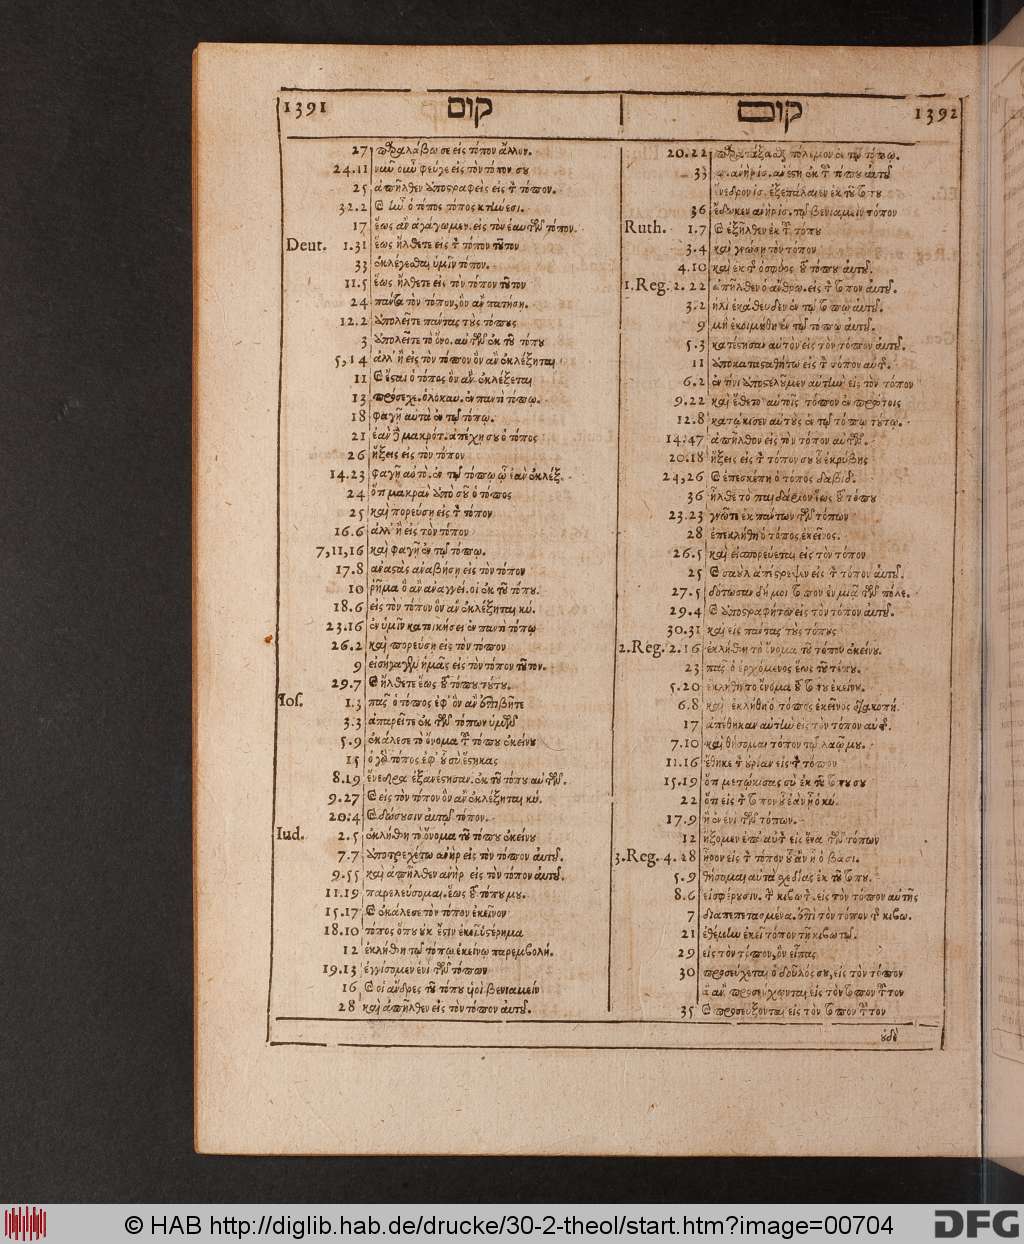 1391 קום
27 παραλάβω σε εἰς τόπον ἄλλον.
24.11 νῦν οὖν φεῦγε εἰς τὸν τόπον σου
25 ἀπῆλθεν ὑποστραφεὶς εἰς τ τόπον.
32.2 καὶ ἦν ὁ τόπος τόπος κτήνεσι.
17 ἕως ἂν ἀγάγωμεν εἰς τὸν ἑαυτῶν τόπον.
Deut. 1.31 ἕως ἤλθετε εἰς τ τόπον τοῦτον
33 ἐκλέγεσθαι ὑμῖν τόπον.
11.5 ἕως ἤλθετε εἰς τὸν τόπον τοῦτον
24 πάντα τὸν τόπον, ὃν ἂν πατήσῃ.
12.2 ἀπολεῖτε πάντας τοὺς τόπους
3 ἀπολεῖτε τὸ ὄνο. αὐτῶν ἐκ τοῦ τόπου
5,14 ἀλλ' ἢ εἰς τὸν τόπον ὃν ἂν ἐκλέξηται
11 καὶ ἔσται ὁ τόπος ὃν ἂν ἐκλέξεται
13 πρόσεχε. ὁλόκαυ. ἐν παντὶ τόπῳ.
18 φαγῇ αὐτὰ ἐν τῷ τόπῳ.
21 ἐὰν δὲ μακρότ. ἀπέχῃ σου ὁ τόπος
26 ἥξεις εἰς τὸν τόπον
14.23 φαγῇ αὐτὸ. ἐν τῷ τόπῳ ᾧ ἐὰν ἐκλέξ.
24 ὅτι μακρὰν ἀπὸ σοῦ ὁ τόπος
25 καὶ πορεύσῃ εἰς τ τόπον
16.6 ἀλλ' ἢ εἰς τὸν τόπον
7,11,16 καὶ φαγῇ ἐν τῷ τόπῳ.
17.8 ἀναστὰς ἀναβήσῃ εἰς τὸν τόπον
10 ῥῆμα ὃ ἂν ἀναγγεί. οἱ ἐκ τοῦ τόπου.
18.6 εἰς τὸν τόπον ὃν ἂν ἐκλέξηται κύ.
23.16 ἐν ὑμῖν κατοικήσει ἐν παντὶ τόπῳ
26.2 καὶ πορεύσῃ εἰς τὸν τόπον
9 εἰσήγαγεν ἡμᾶς εἰς τὸν τόπον τοῦτον.
29.7 καὶ ἤλθετε ἕως τοῦ τόπου τούτου.
Ios. 1.3 πᾶς ὁ τόπος ἐφ' ὃν ἂν ἐπιβῆτε
3.3 ἀπαρεῖτε ἐκ τῶν τόπων ὑμῶν
5.9 ἐκάλεσε τὸ ὄνομα τοῦ τόπου ἐκείνου
15 ὁ γὰρ τόπος ἐφ' ᾧ σὺ ἕστηκας
8.19 ἔνεδρα ἐξανέστησαν. ἐκ τοῦ τόπου αὐτῶν.
9.27 καὶ εἰς τὸν τόπον ὃν ἂν ἐκλέξηται κύ.
20.4 καὶ δώσουσιν αὐτῷ τόπον.
Iud. 2.5 ἐκλήθη τὸ ὄνομα τοῦ τόπου ἐκείνου
7.7 ἀποτρεχέτω ἀνὴρ εἰς τὸν τόπον αὐτοῦ.
9.55 καὶ ἀπῆλθεν ἀνὴρ εἰς τὸν τόπον αὐτοῦ.
11.19 παρελεύσομαι. ἕως τοῦ τόπου μου.
15.17 καὶ ἐκάλεσε τὸν τόπον ἐκεῖνον
18.10 τόπος ὅπου οὐκ ἔστιν ἐκεῖ ὑστέρημα
12 ἐκλήθη τῷ τόπῳ ἐκείνῳ παρεμβολή.
19.13 ἐγγίσομεν ἑνὶ τῶν τόπων
16 καὶ οἱ ἄνδρες τοῦ τόπου υἱοὶ βενιαμεὶν
28 καὶ ἀπῆλθεν εἰς τὸν τόπον αὐτοῦ.
קום 1392
20.22 παρατάξασθαι πόλεμον ἐν τῷ τόπῳ.
33 ἀνὴρ ἰσ. ἀνέστη ἐκ τοῦ τόπου αὐτοῦ
ἔνεδρον ἰσ. ἐξεπάλαιεν ἐκ τοῦ τόπου
36 ἔδωκεν ἀνὴρ ἰσ. τῷ βενιαμεὶν τόπον
Ruth. 1.7 καὶ ἐξῆλθεν ἐκ τοῦ τόπου
3.4 καὶ γνώσῃ τὸν τόπον
4.10 καὶ ἐκ τ ὀσφύος τοῦ τόπου αὐτοῦ.
1.Reg. 2.22 ἀπῆλθεν ὁ ἄνθρω. εἰς τ τόπον αὐτοῦ.
3.2 ἡλὶ ἐκάθευδεν ἐν τῷ τόπῳ αὐτοῦ.
9 μὴ ἐκοιμήθη ἐν τῷ τόπῳ αὐτοῦ.
5.3 κατέστησαν αὐτὸν εἰς τὸν τόπον αὐτοῦ.
11 ἀποκαταστήτω εἰς τ τόπον αὐτ.
6.2 ἐν τίνι ἀποστελοῦμεν αὐτὴν εἰς τὸν τόπον
9.22 καὶ ἔθετο αὐτοῖς τόπον ἐν πρώτοις
12.8 κατῴκισεν αὐτοὺς ἐν τῷ τόπῳ τούτῳ.
14.47 ἀπῆλθον εἰς τὸν τόπον αὐτῶν.
20.18 ἥξεις εἰς τ τόπον σου οὗ ἐκρύβης
24,26 καὶ ἐπεσκέπη ὁ τόπος δαβίδ.
36 ἦλθε τὸ παιδάριον ἕως τοῦ τόπου
23.23 γνῶτε ἐκ πάντων τῶν τόπων
28 ἐπεκλήθη ὁ τόπος ἐκεῖνος.
26.5 καὶ εἰσπορεύεται εἰς τὸν τόπον
25 καὶ σαοὺλ ἀπέστρεψεν εἰς τ τόπον αὐτοῦ.
27.5 δότωσαν δή μοι τόπον ἐν μιᾷ τῶν πόλε.
29.4 καὶ ἀποστραφήτω εἰς τὸν τόπον αὐτοῦ.
30.31 καὶ εἰς πάντας τοὺς τόπους
2.Reg. 2.16 ἐκλήθη τὸ ὄνομα τοῦ τόπου ἐκείνου.
23 πᾶς ὁ ἐρχόμενος ἕως τοῦ τόπου.
5.20 ἐκλήθη τὸ ὄνομα τοῦ τόπου ἐκείνου.
6.8 καὶ ἐκλήθη ὁ τόπος ἐκεῖνος διακοπή.
17 ἀπέθηκαν αὐτὴν εἰς τὸν τόπον αὐτ.
7.10 καὶ θήσομαι τόπον τῷ λαῷ μου.
11.16 ἔθηκε τ οὐρίαν εἰς τ τόπον
15.19 ὅτι μετῴκισας σὺ ἐκ τοῦ τόπου σου
22 ὅτι εἰς τ τόπον οὗ ἐὰν ᾖ ὁ κύ.
17.9 ἢ ἐν ἑνὶ τῶν τόπων.
12 ἥξομεν ἐπ' αὐτ εἰς ἕνα τῶν τόπων
3.Reg. 4.28 ᾖρον εἰς τ τόπον οὗ ἂν ᾖ ὁ βασι.
5.9 θήσομαι αὐτὰ σχεδίας ἐκ τοῦ τόπου.
8.6 εἰσφέρουσιν. τ κιβωτ. εἰς τὸν τόπον αὐτῆς
7 διαπεπετασμένα. ἐπὶ τὸν τόπον τ κιβω.
21 ἐθέμην ἐκεῖ τόπον τῇ κιβωτῷ.
29 εἰς τὸν τόπον, ὃν εἶπας
30 προσεύχεται ὁ δοῦλός σου, εἰς τὸν τόπον
ἃ ἂν προσεύχωνται εἰς τὸν τόπον τοῦτον
35 καὶ προσεύξονται εἰς τὸν τόπον τοῦτον
© HAB http://diglib.hab.de/drucke/30-2-theol/start.htm?image=00704
DFG